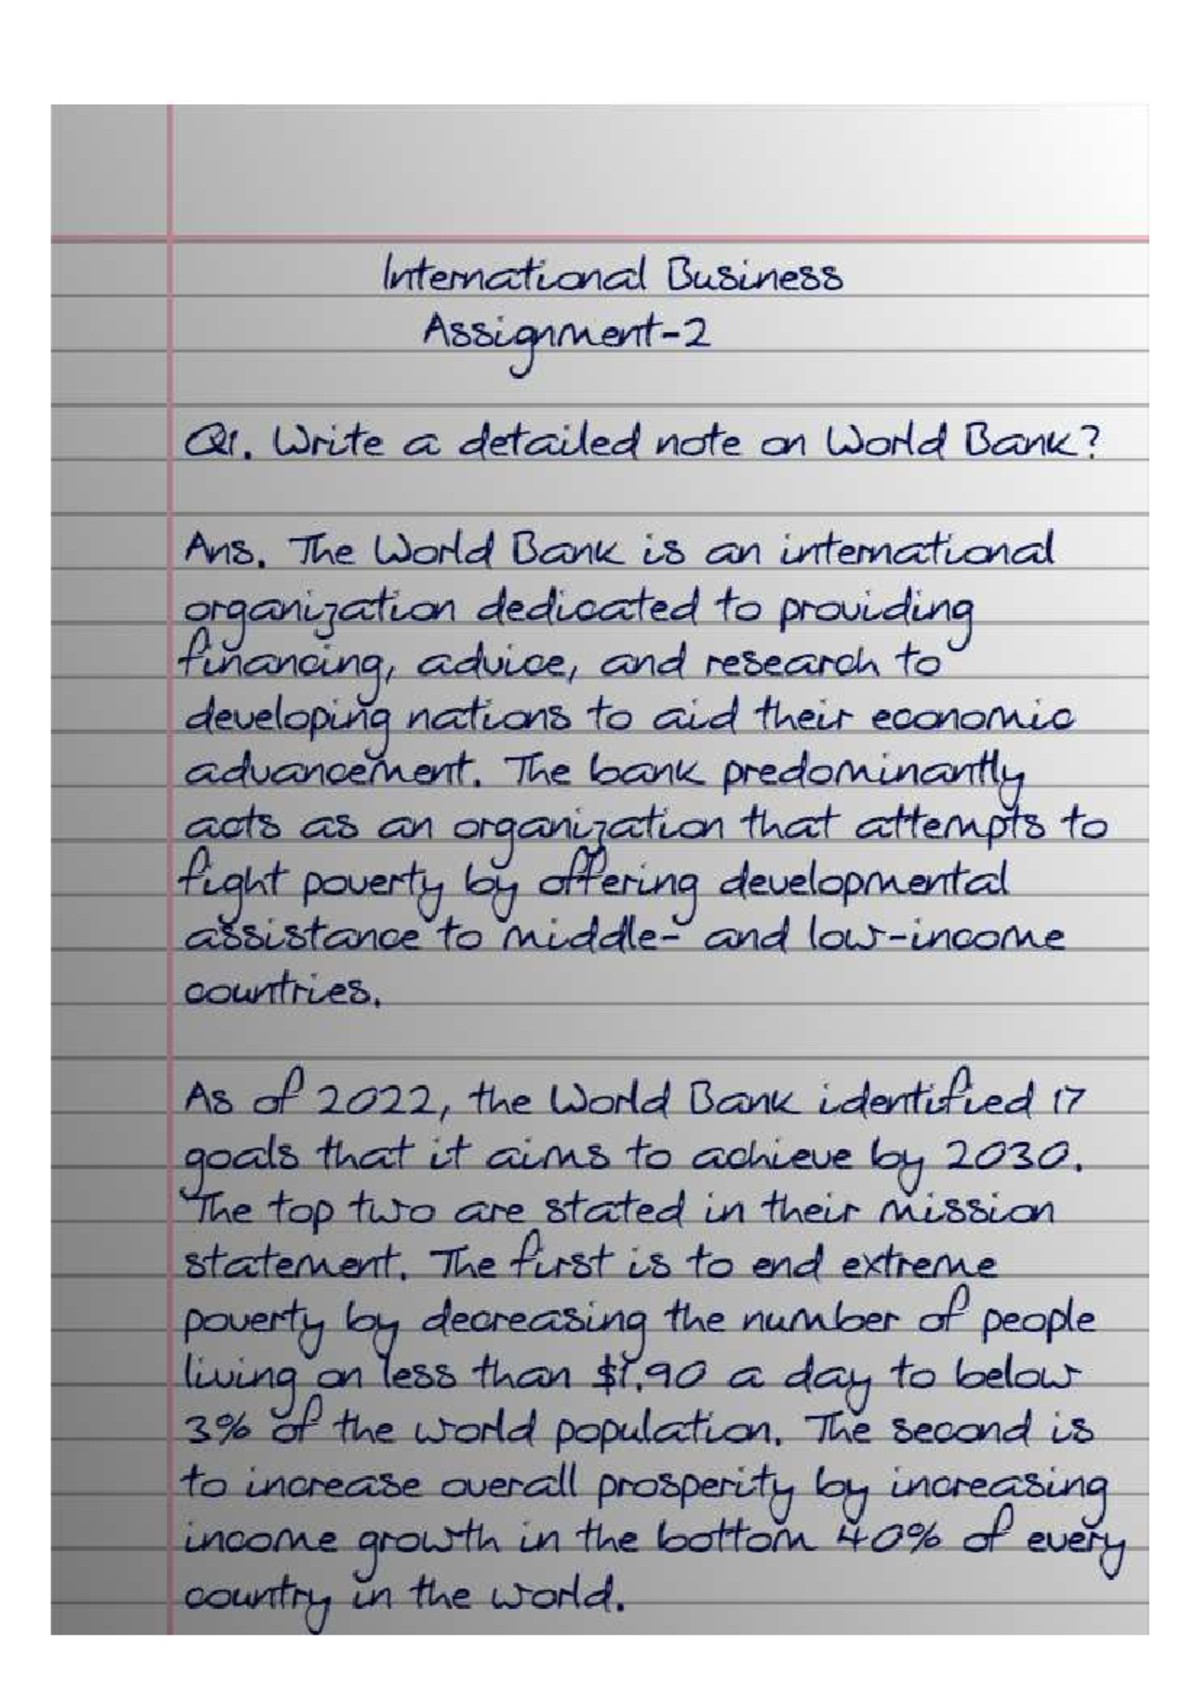 International Business
Assignment-2
Q1. Write a detailed note on World Bank?
Ans. The World Bank is an international
organization dedicated to providing
financing, advice, and research to
developing nations to aid their economic
advancement. The bank predominantly
acts as an organization that attempts to
fight poverty by offering developmental
assistance to middle- and low-income
countries.
As of 2022, the World Bank identified 17
goals that it aims to achieve by 2030.
The top two are stated in their mission
statement. The first is to end extreme
poverty by decreasing the number of people
living on less than $1.90 a day to below
3% of the world population. The second is
to increase overall prosperity by increasing
income growth in the bottom 40% of every
country in the world.